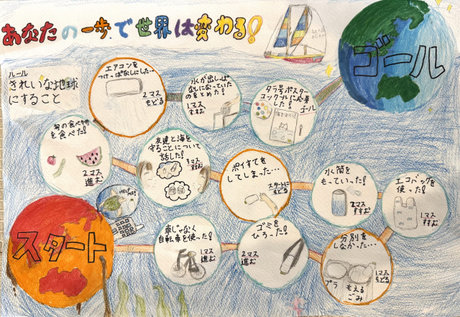 あなたの一歩で世界は変わる!
ルール
きれいな地球
にすること
エアコンを
つけっぱなしにした…
2マス
もどる
水が出しっぱ
なしになっていた
のをとめた!
1マス
すすむ
タラ号ポスター
コンクールに応募
した!
ゴール
ゴール
旬の食べ物
を食べた!
2マス
進む
友達と海を
守ることについて
話した!
1マス
進む
ポイすてを
してしまった…
スタートに
もどる
水筒を
もっていった!
1マス
すすむ
エコバッグを
使った!
1マス
すすむ
スタート
車じゃなく
自転車を使った!
1マス
進む
ゴミを
ひろった!
2マス
進む
分別を
しなかった…
1マス
もどる
プラ
もえる
ごみ